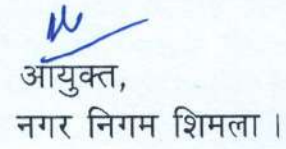 आयुक्त,
नगर निगम शिमला ।